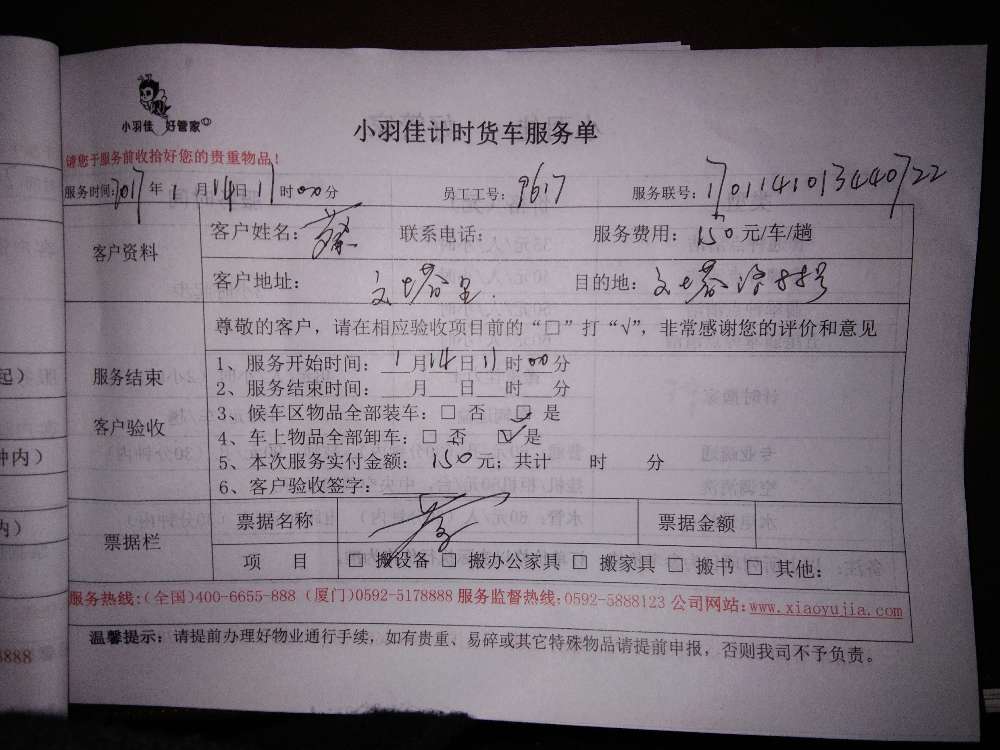 小羽佳 好管家
小羽佳计时货车服务单
请您于服务前收拾好您的贵重物品！
服务时间：2017年1月14日11时00分 员工工号：9617 服务联号：1701141013440722
客户资料
客户姓名：蔡 联系电话： 服务费用：150元/车/趟
客户地址：文塔 目的地：文塔
尊敬的客户，请在相应验收项目前的“□”打“√”，非常感谢您的评价和意见
服务结束
客户验收
1、服务开始时间：1月14日11时00分
2、服务结束时间：___月___日___时___分
3、候车区物品全部装车：□ 否 ☑ 是
4、车上物品全部卸车：□ 否 ☑ 是
5、本次服务实付金额：150元；共计 时 分
6、客户验收签字：
票据栏
票据名称 票据金额
项 目 □ 搬设备 □ 搬办公家具 □ 搬家具 □ 搬书 □ 其他：
服务热线：(全国)400-6655-888 (厦门)0592-5178888 服务监督热线：0592-5888123 公司网站：www.xiaoyujia.com
温馨提示：请提前办理好物业通行手续，如有贵重、易碎或其它特殊物品请提前申报，否则我司不予负责。
起）
钟内）
内）
8888